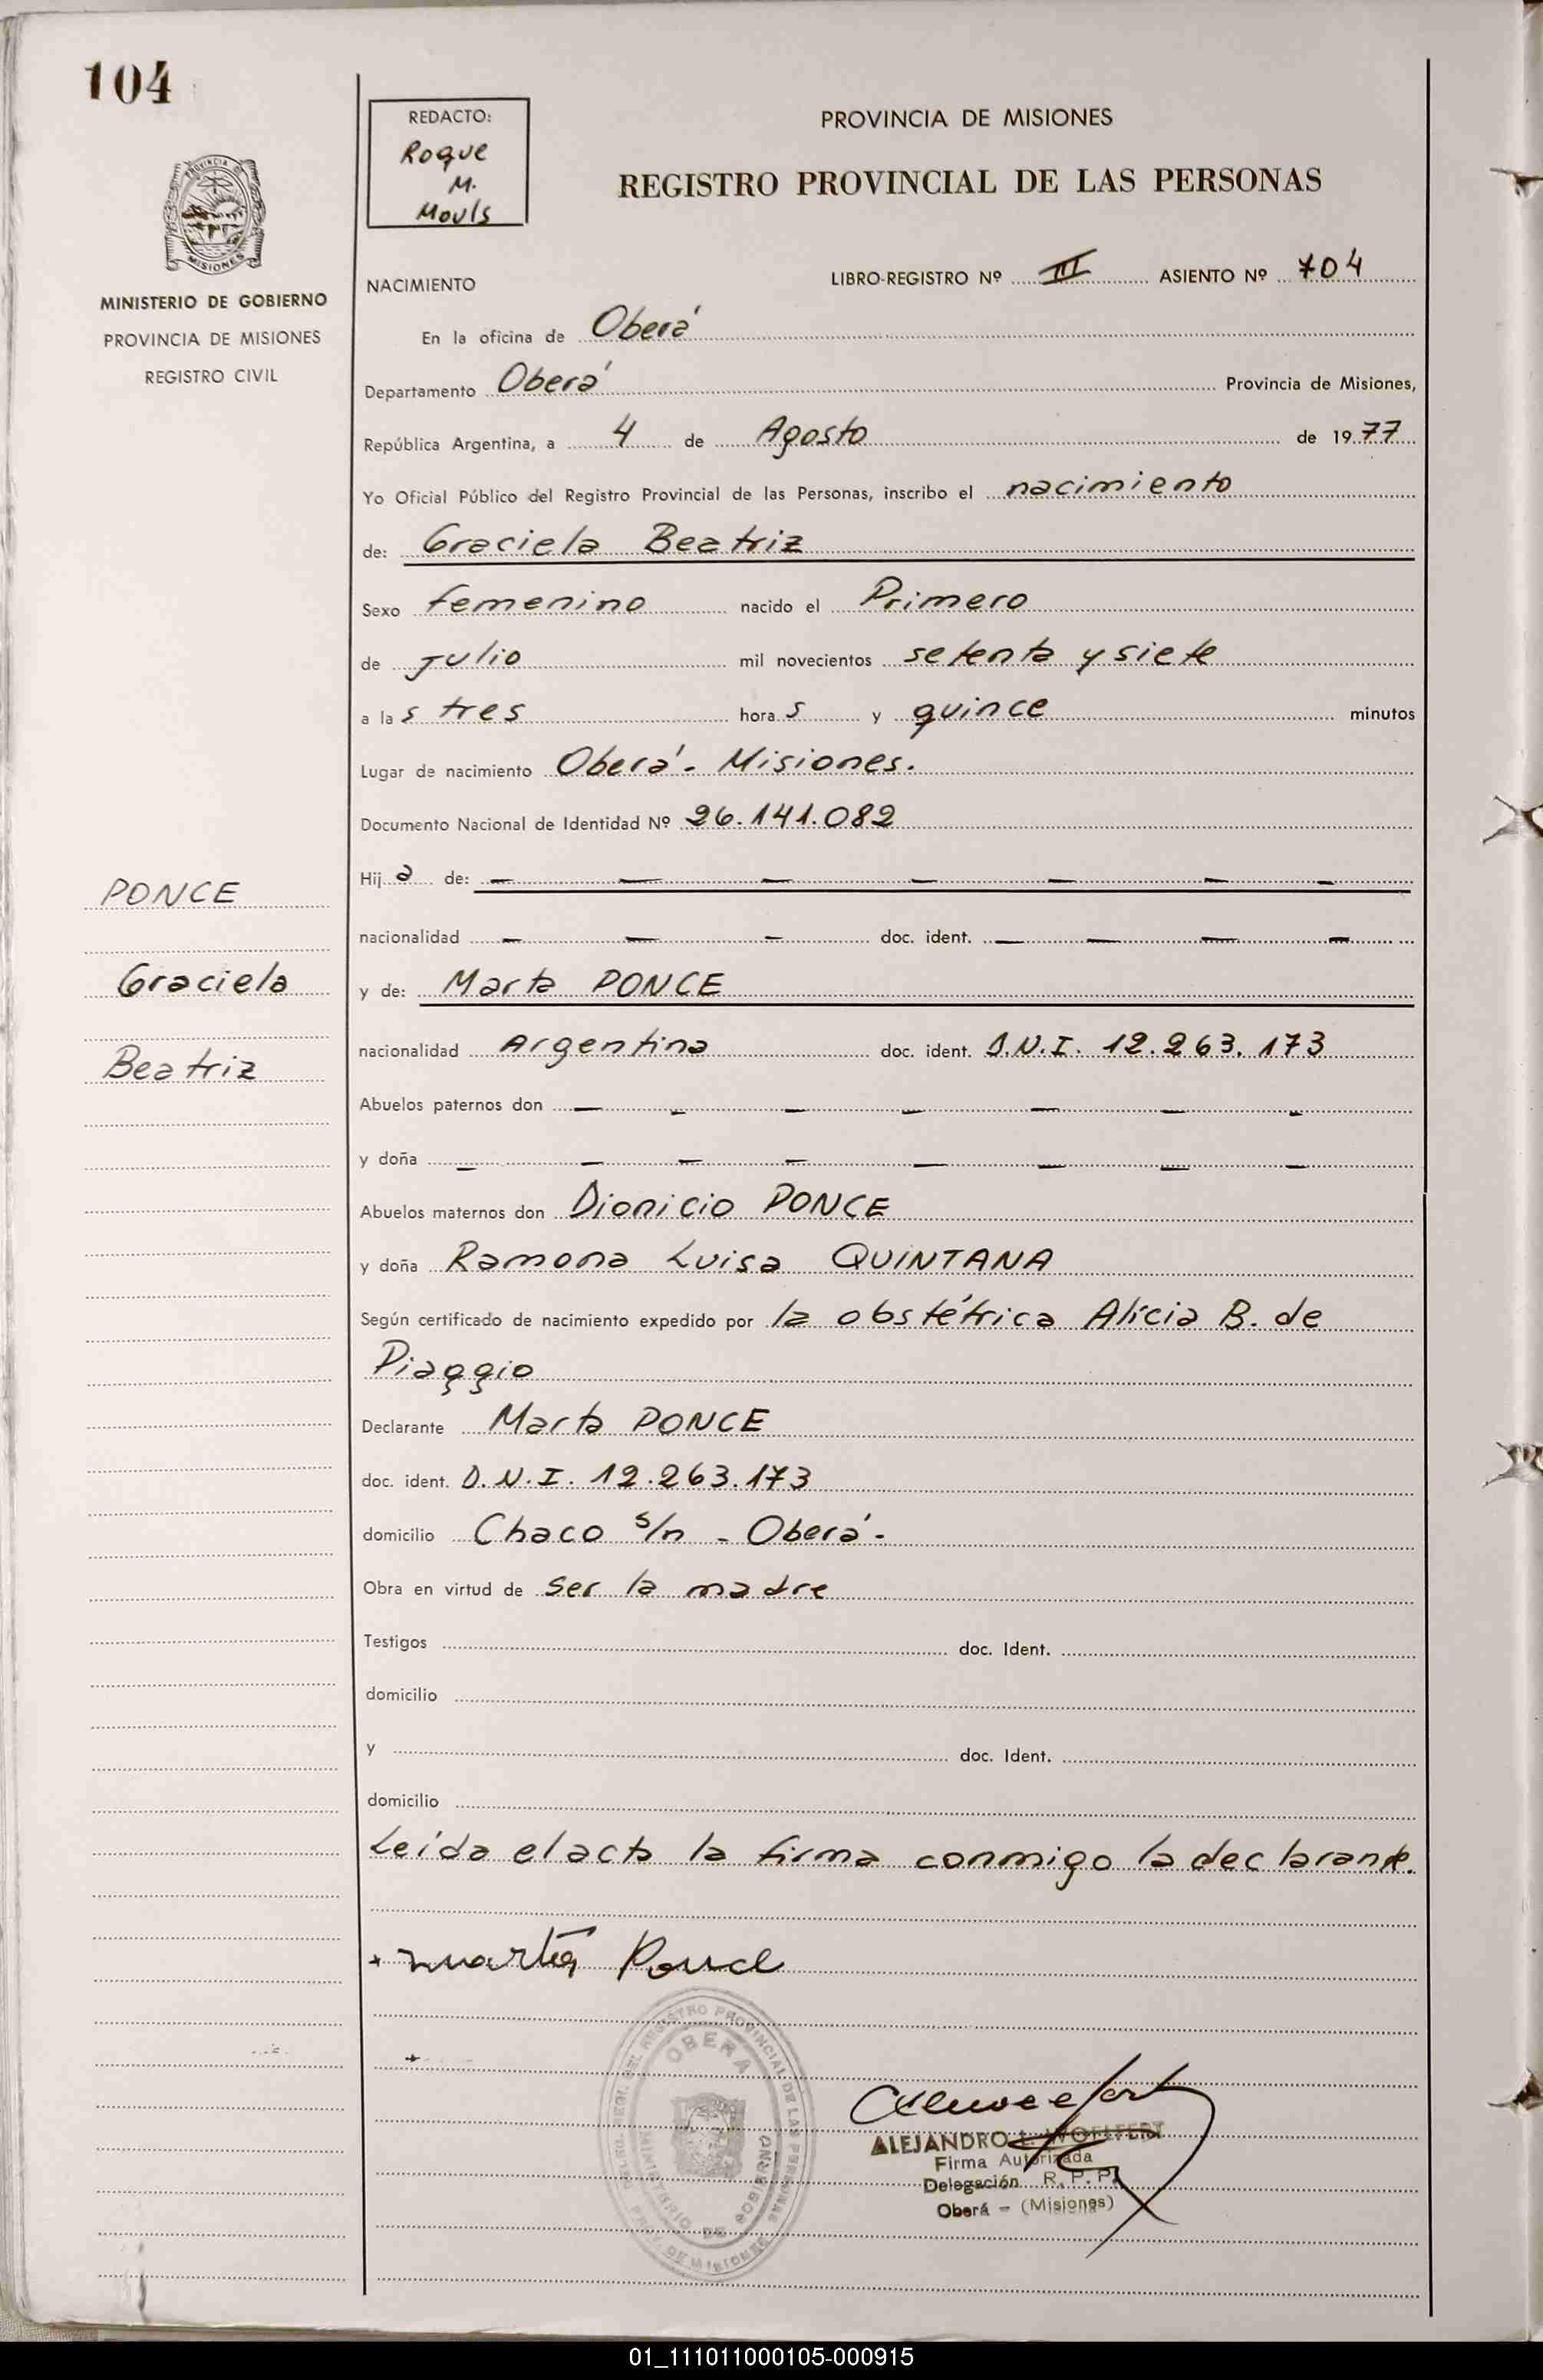 104
REDACTO:
Roque
M.
Mouls
PROVINCIA DE MISIONES
REGISTRO PROVINCIAL DE LAS PERSONAS
PROVINCIA
MISIONES
MINISTERIO DE GOBIERNO
PROVINCIA DE MISIONES
REGISTRO CIVIL
NACIMIENTO
LIBRO-REGISTRO Nº III ASIENTO Nº 704
En la oficina de Oberá
Departamento Oberá Provincia de Misiones,
República Argentina, a 4 de Agosto de 1977
Yo Oficial Público del Registro Provincial de las Personas, inscribo el nacimiento
de: Graciela Beatriz
Sexo femenino nacido el Primero
de julio mil novecientos setenta y siete
a las tres horas y quince minutos
Lugar de nacimiento Oberá - Misiones.
Documento Nacional de Identidad Nº 26.141.082
Hija de: — — — — — — —
nacionalidad — — — doc. ident. — — — —
y de: Marta PONCE
nacionalidad Argentina doc. ident. D.N.I. 12.263.173
Abuelos paternos don — — — — — — —
y doña — — — — — — — —
Abuelos maternos don Dionicio PONCE
y doña Ramona Luisa QUINTANA
Según certificado de nacimiento expedido por la obstétrica Alicia B. de
Piaggio
Declarante Marta PONCE
doc. ident. D.N.I. 12.263.173
domicilio Chaco s/n - Oberá -
Obra en virtud de ser la madre
Testigos doc. Ident.
domicilio
y doc. Ident.
domicilio
Leída el acta la firma conmigo la declarante.
PONCE
Graciela
Beatriz
Marta Ponce
OBERA
REGISTRO PROVINCIAL DE LAS PERSONAS
MINISTERIO DE GOBIERNO
PROV. DE MISIONES
ALEJANDRO L. WOELFERT
Firma Autorizada
Delegación R. P. P.
Oberá - (Misiones)
01_111011000105-000915